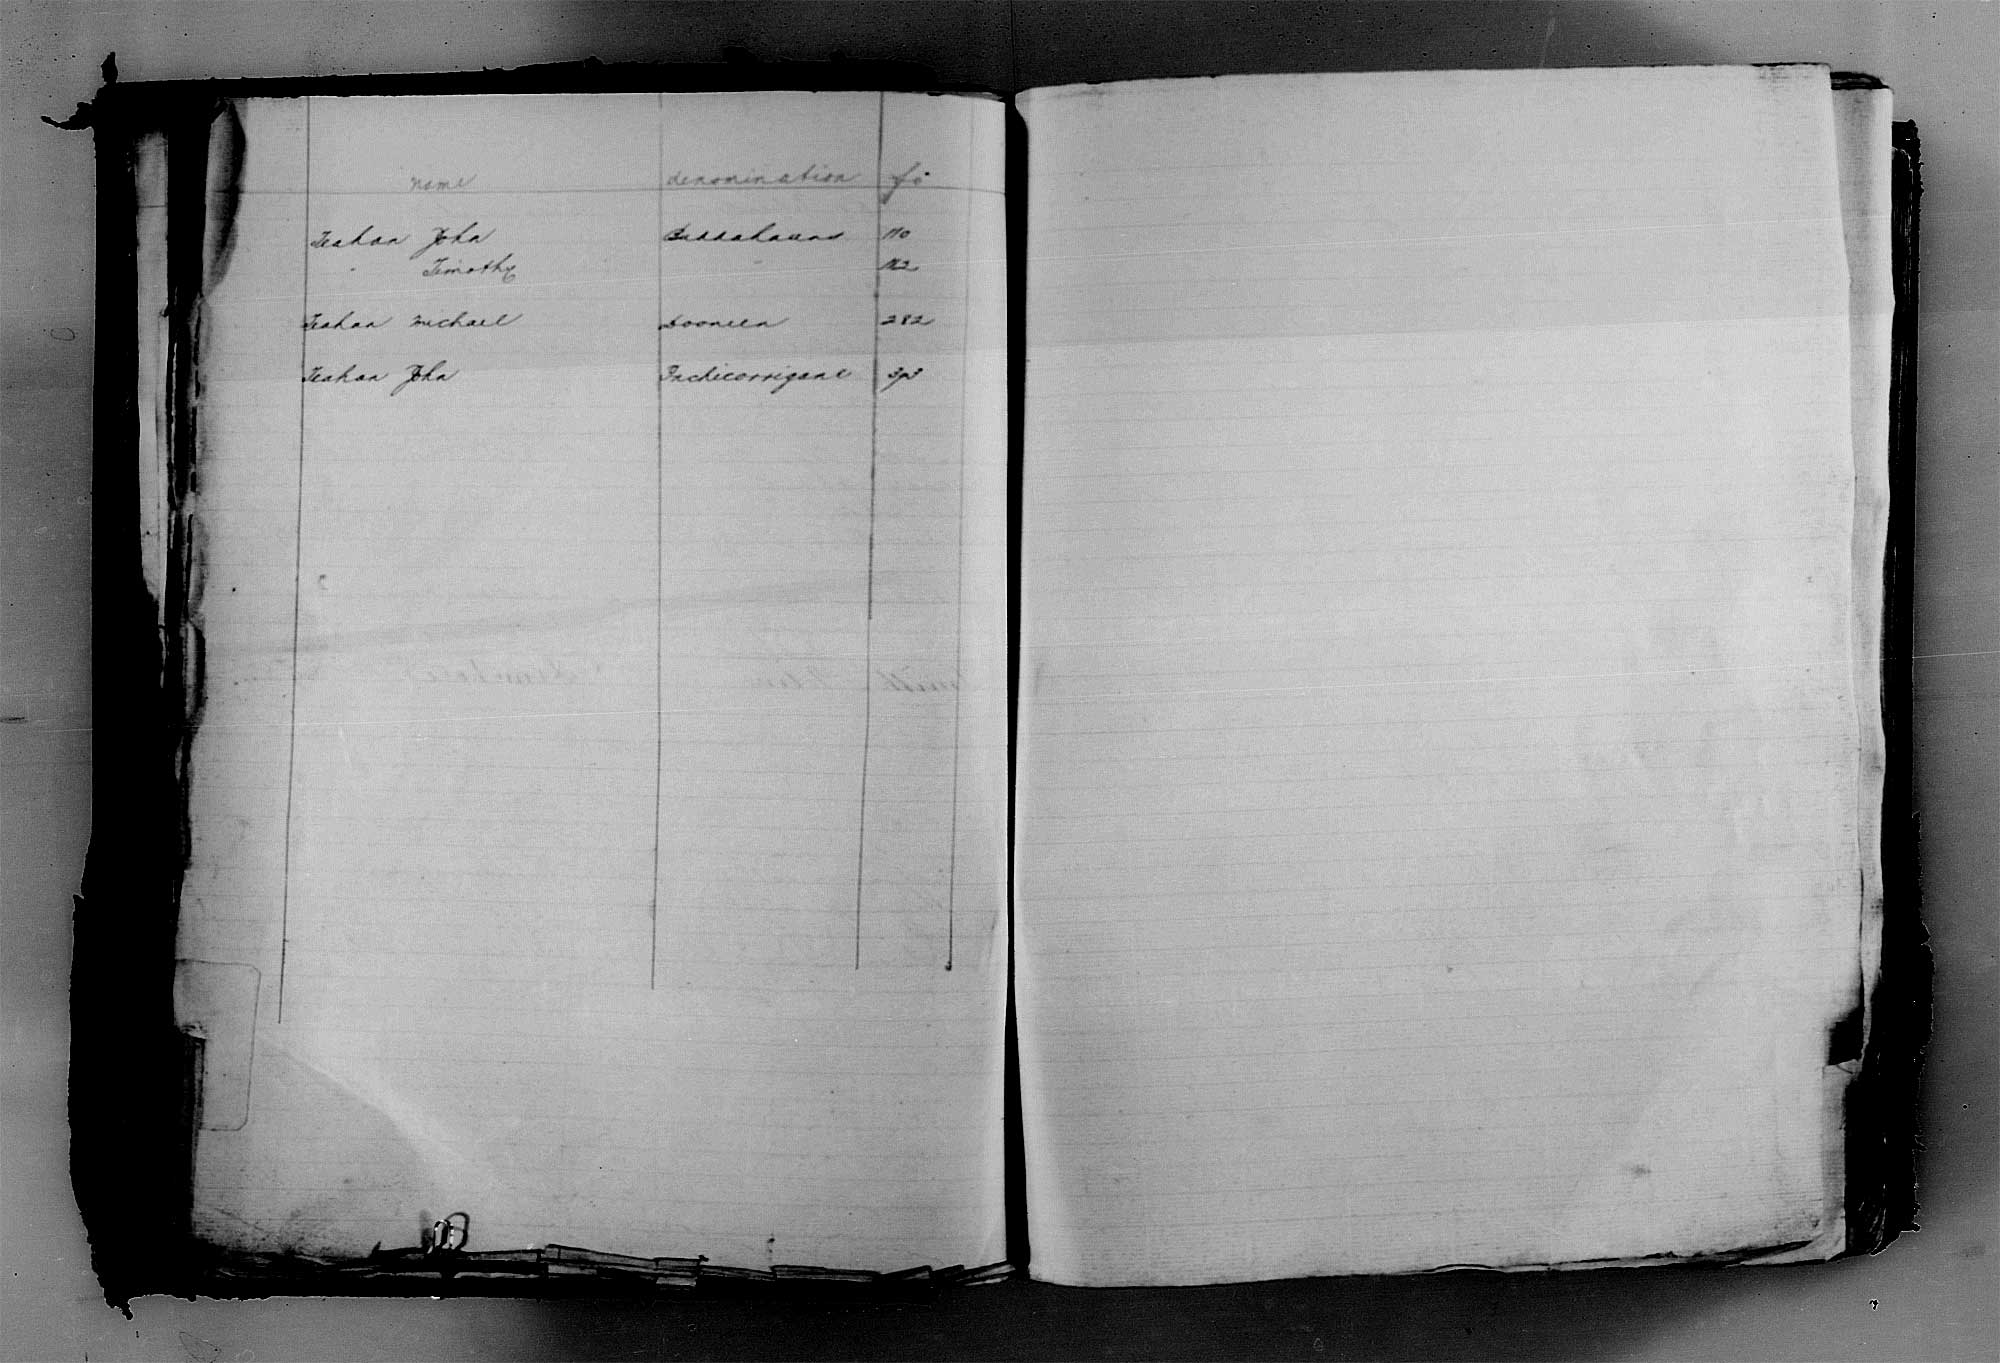 name denomination fo
Teahan John 110
" Timothy " 112
Teahan Michael Dooneen 282
Teahan John Inchicorrigane 393